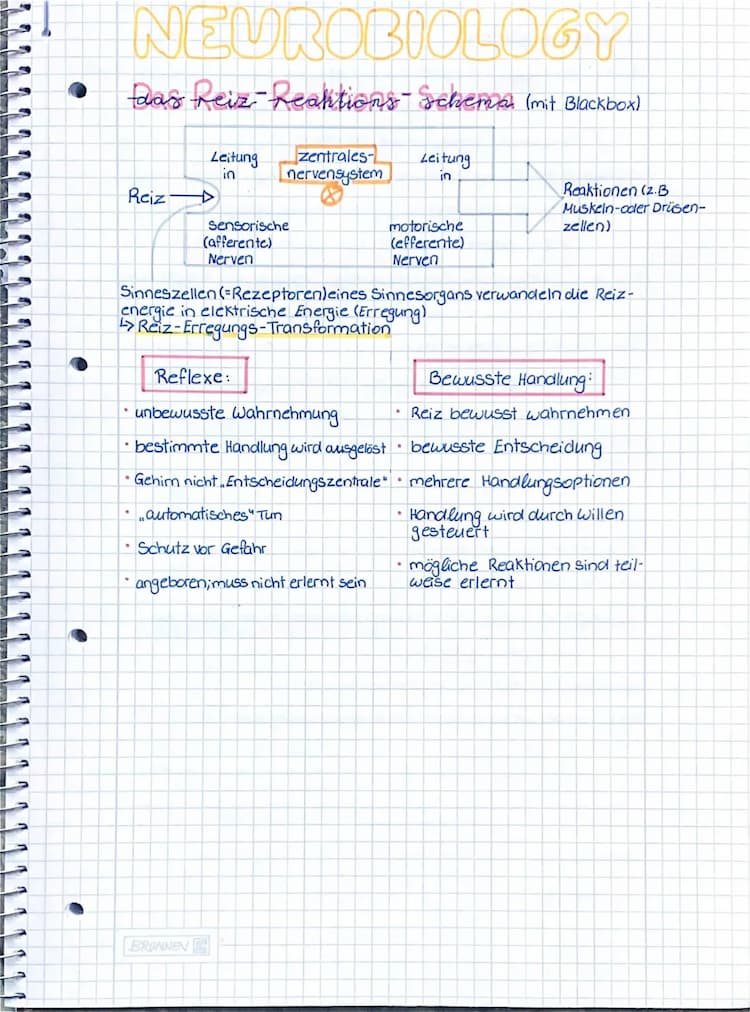 NEUROBIOLOGY
Das Reiz-Reaktions-Schema (mit Blackbox)
Leitung in
zentrales-nervensystem
Leitung in
Reiz
Reaktionen (z.B
Muskeln-oder Drüsen-
zellen)
sensorische
(afferente)
Nerven
motorische
(efferente)
Nerven
Sinneszellen (=Rezeptoren) eines Sinnesorgans verwandeln die Reiz-
energie in elektrische Energie (Erregung)
↳ Reiz-Erregungs-Transformation
Reflexe:
• unbewusste Wahrnehmung
• bestimmte Handlung wird ausgelöst
• Gehirn nicht „Entscheidungszentrale"
• „automatisches" Tun
• Schutz vor Gefahr
• angeboren; muss nicht erlernt sein
Bewusste Handlung:
• Reiz bewusst wahrnehmen
• bewusste Entscheidung
• mehrere Handlungsoptionen
• Handlung wird durch Willen
gesteuert
• mögliche Reaktionen sind teil-
weise erlernt
BRUNNEN